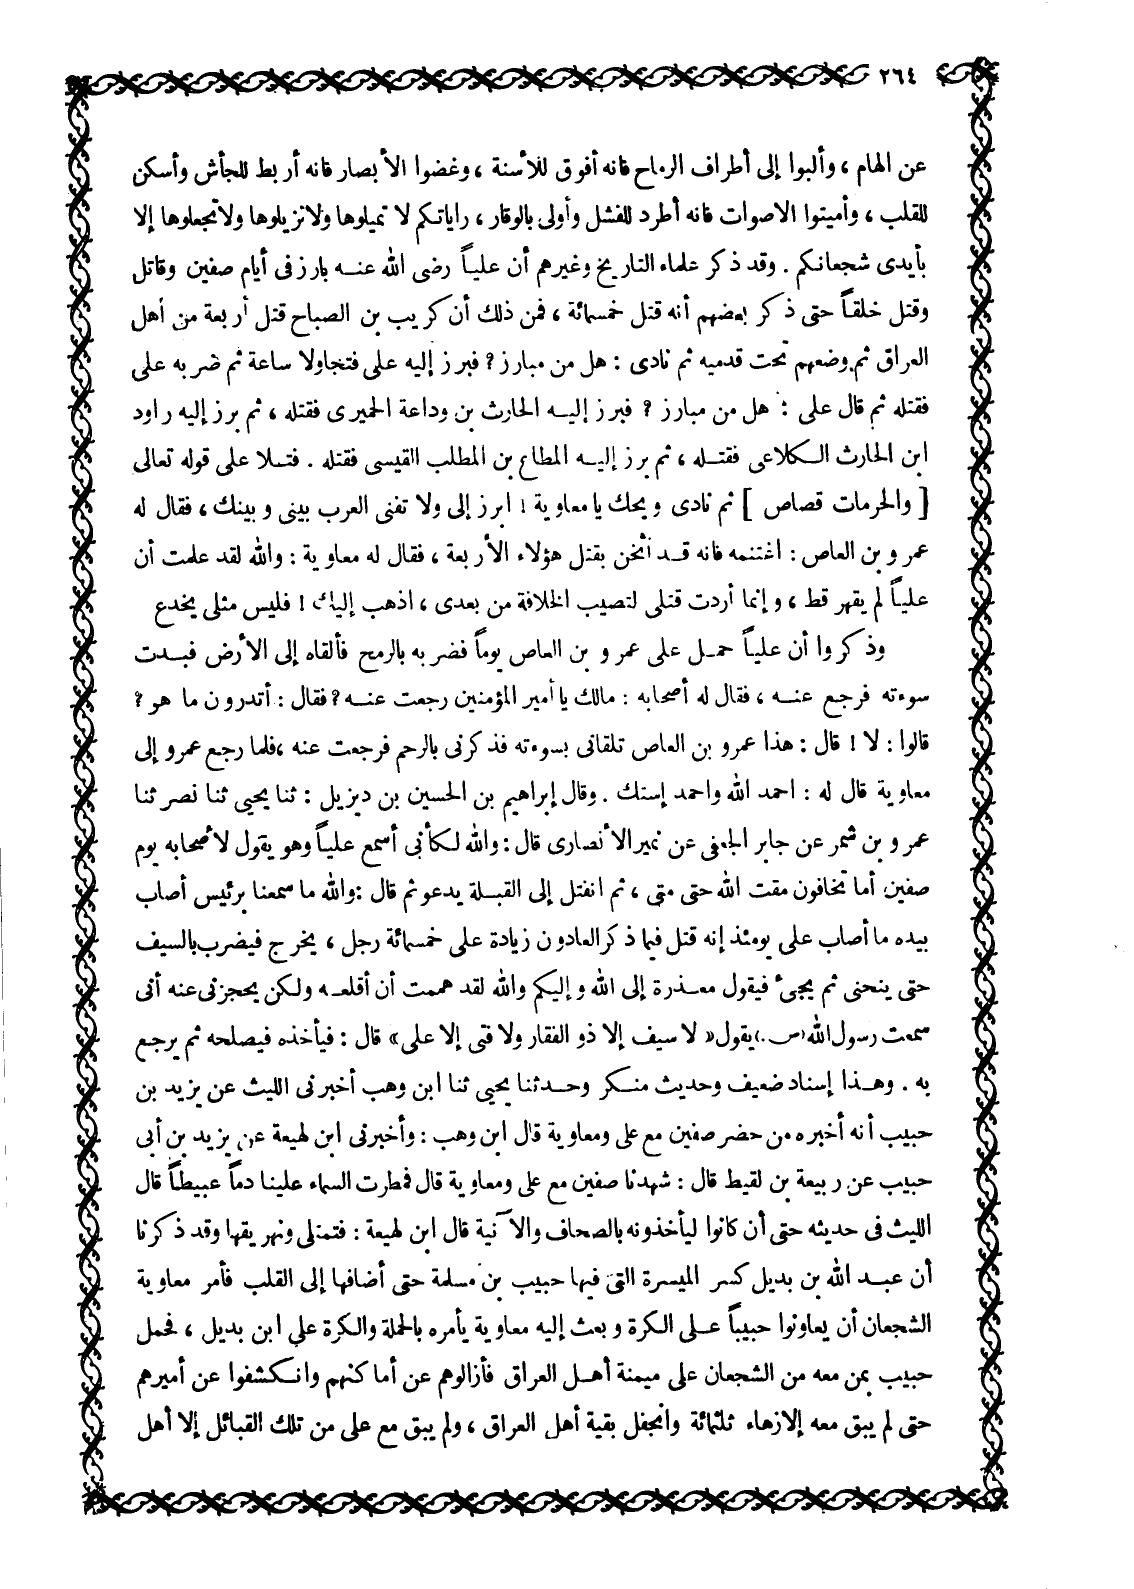 ٢٦٤
عن الهام ، وألبوا إلى أطراف الرماح فانه أفوق للأسنة ، وغضوا الأبصار فانه أربط للجأش وأسكن
للقلب ، وأميتوا الاصوات فانه أطرد للفشل وأولى بالوقار ، راياتكم لا تميلوها ولا تزيلوها ولا تجعلوها إلا
بأيدى شجعانكم . وقد ذكر علماء التاريخ وغيرهم أن علياً رضى الله عنه بارز فى أيام صفين وقاتل
وقتل خلقاً حتى ذكر بعضهم أنه قتل خمسمائة ، فمن ذلك أن كريب بن الصباح قتل أربعة من أهل
العراق ثم وضعهم تحت قدميه ثم نادى : هل من مبارز ? فبرز إليه على فتجاولا ساعة ثم ضربه على
فقتله ثم قال على : هل من مبارز ? فبرز إليه الحارث بن وداعة الحميرى فقتله ، ثم برز إليه راود
ابن الحارث الكلاعى فقتله ، ثم برز إليه المطاع بن المطلب القيسى فقتله . فتلا على قوله تعالى
[ والحرمات قصاص ] ثم نادى ويحك يا معاوية ! ابرز إلى ولا تفنى العرب بينى وبينك ، فقال له
عمرو بن العاص : اغتنمه فانه قد أثخن بقتل هؤلاء الأربعة ، فقال له معاوية : والله لقد علمت أن
علياً لم يقهر قط ، وإنما أردت قتلى لتصيب الخلافة من بعدى ، اذهب إليك ! فليس مثلى يخدع
وذكروا أن علياً حمل على عمرو بن العاص يوماً فضربه بالرمح فألقاه إلى الأرض فبدت
سوءته فرجع عنه ، فقال له أصحابه : مالك يا أمير المؤمنين رجعت عنه ? فقال : أتدرون ما هو ?
قالوا : لا ! قال : هذا عمرو بن العاص تلقانى بسوءته فذكرنى بالرحم فرجعت عنه ، فلما رجع عمرو إلى
معاوية قال له : احمد الله واحمد إستك . وقال إبراهيم بن الحسين بن ديزيل : ثنا يحيى ثنا نصر ثنا
عمرو بن شمر عن جابر الجعفى عن نمير الأنصارى قال : والله لكأنى أسمع علياً وهو يقول لأصحابه يوم
صفين أما تخافون مقت الله حتى متى ، ثم انفتل إلى القبلة يدعو ثم قال : والله ما سمعنا برئيس أصاب
بيده ما أصاب على يومئذ إنه قتل فيما ذكر العادون زيادة على خمسمائة رجل ، يخرج فيضرب بالسيف
حتى ينحنى ثم يجىء فيقول معذرة إلى الله وإليكم والله لقد هممت أن أقلعه ولكن يحجزنى عنه أنى
سمعت رسول الله (ص.) يقول « لا سيف إلا ذو الفقار ولا فتى إلا على » قال : فيأخذه فيصلحه ثم يرجع
به . وهذا إسناد ضعيف وحديث منكر وحدثنا يحيى ثنا ابن وهب أخبرنى الليث عن يزيد بن
حبيب أنه أخبره من حضر صفين مع على ومعاوية قال ابن وهب : وأخبرنى ابن لهيعة عن يزيد بن أبى
حبيب عن ربيعة بن لقيط قال : شهدنا صفين مع على ومعاوية قال فمطرت السماء علينا دماً عبيطاً قال
الليث فى حديثه حتى أن كانوا ليأخذونه بالصحاف والآنية قال ابن لهيعة : فتمتلى ونهريقها وقد ذكرنا
أن عبد الله بن بديل كسر الميسرة التى فيها حبيب بن مسلمة حتى أضافها إلى القلب فأمر معاوية
الشجعان أن يعاونوا حبيباً على الكرة وبعث إليه معاوية يأمره بالحملة والكرة على ابن بديل ، فحمل
حبيب بمن معه من الشجعان على ميمنة أهل العراق فأزالوهم عن أماكنهم وانكشفوا عن أميرهم
حتى لم يبق معه إلا زهاء ثلثمائة وانجفل بقية أهل العراق ، ولم يبق مع على من تلك القبائل إلا أهل